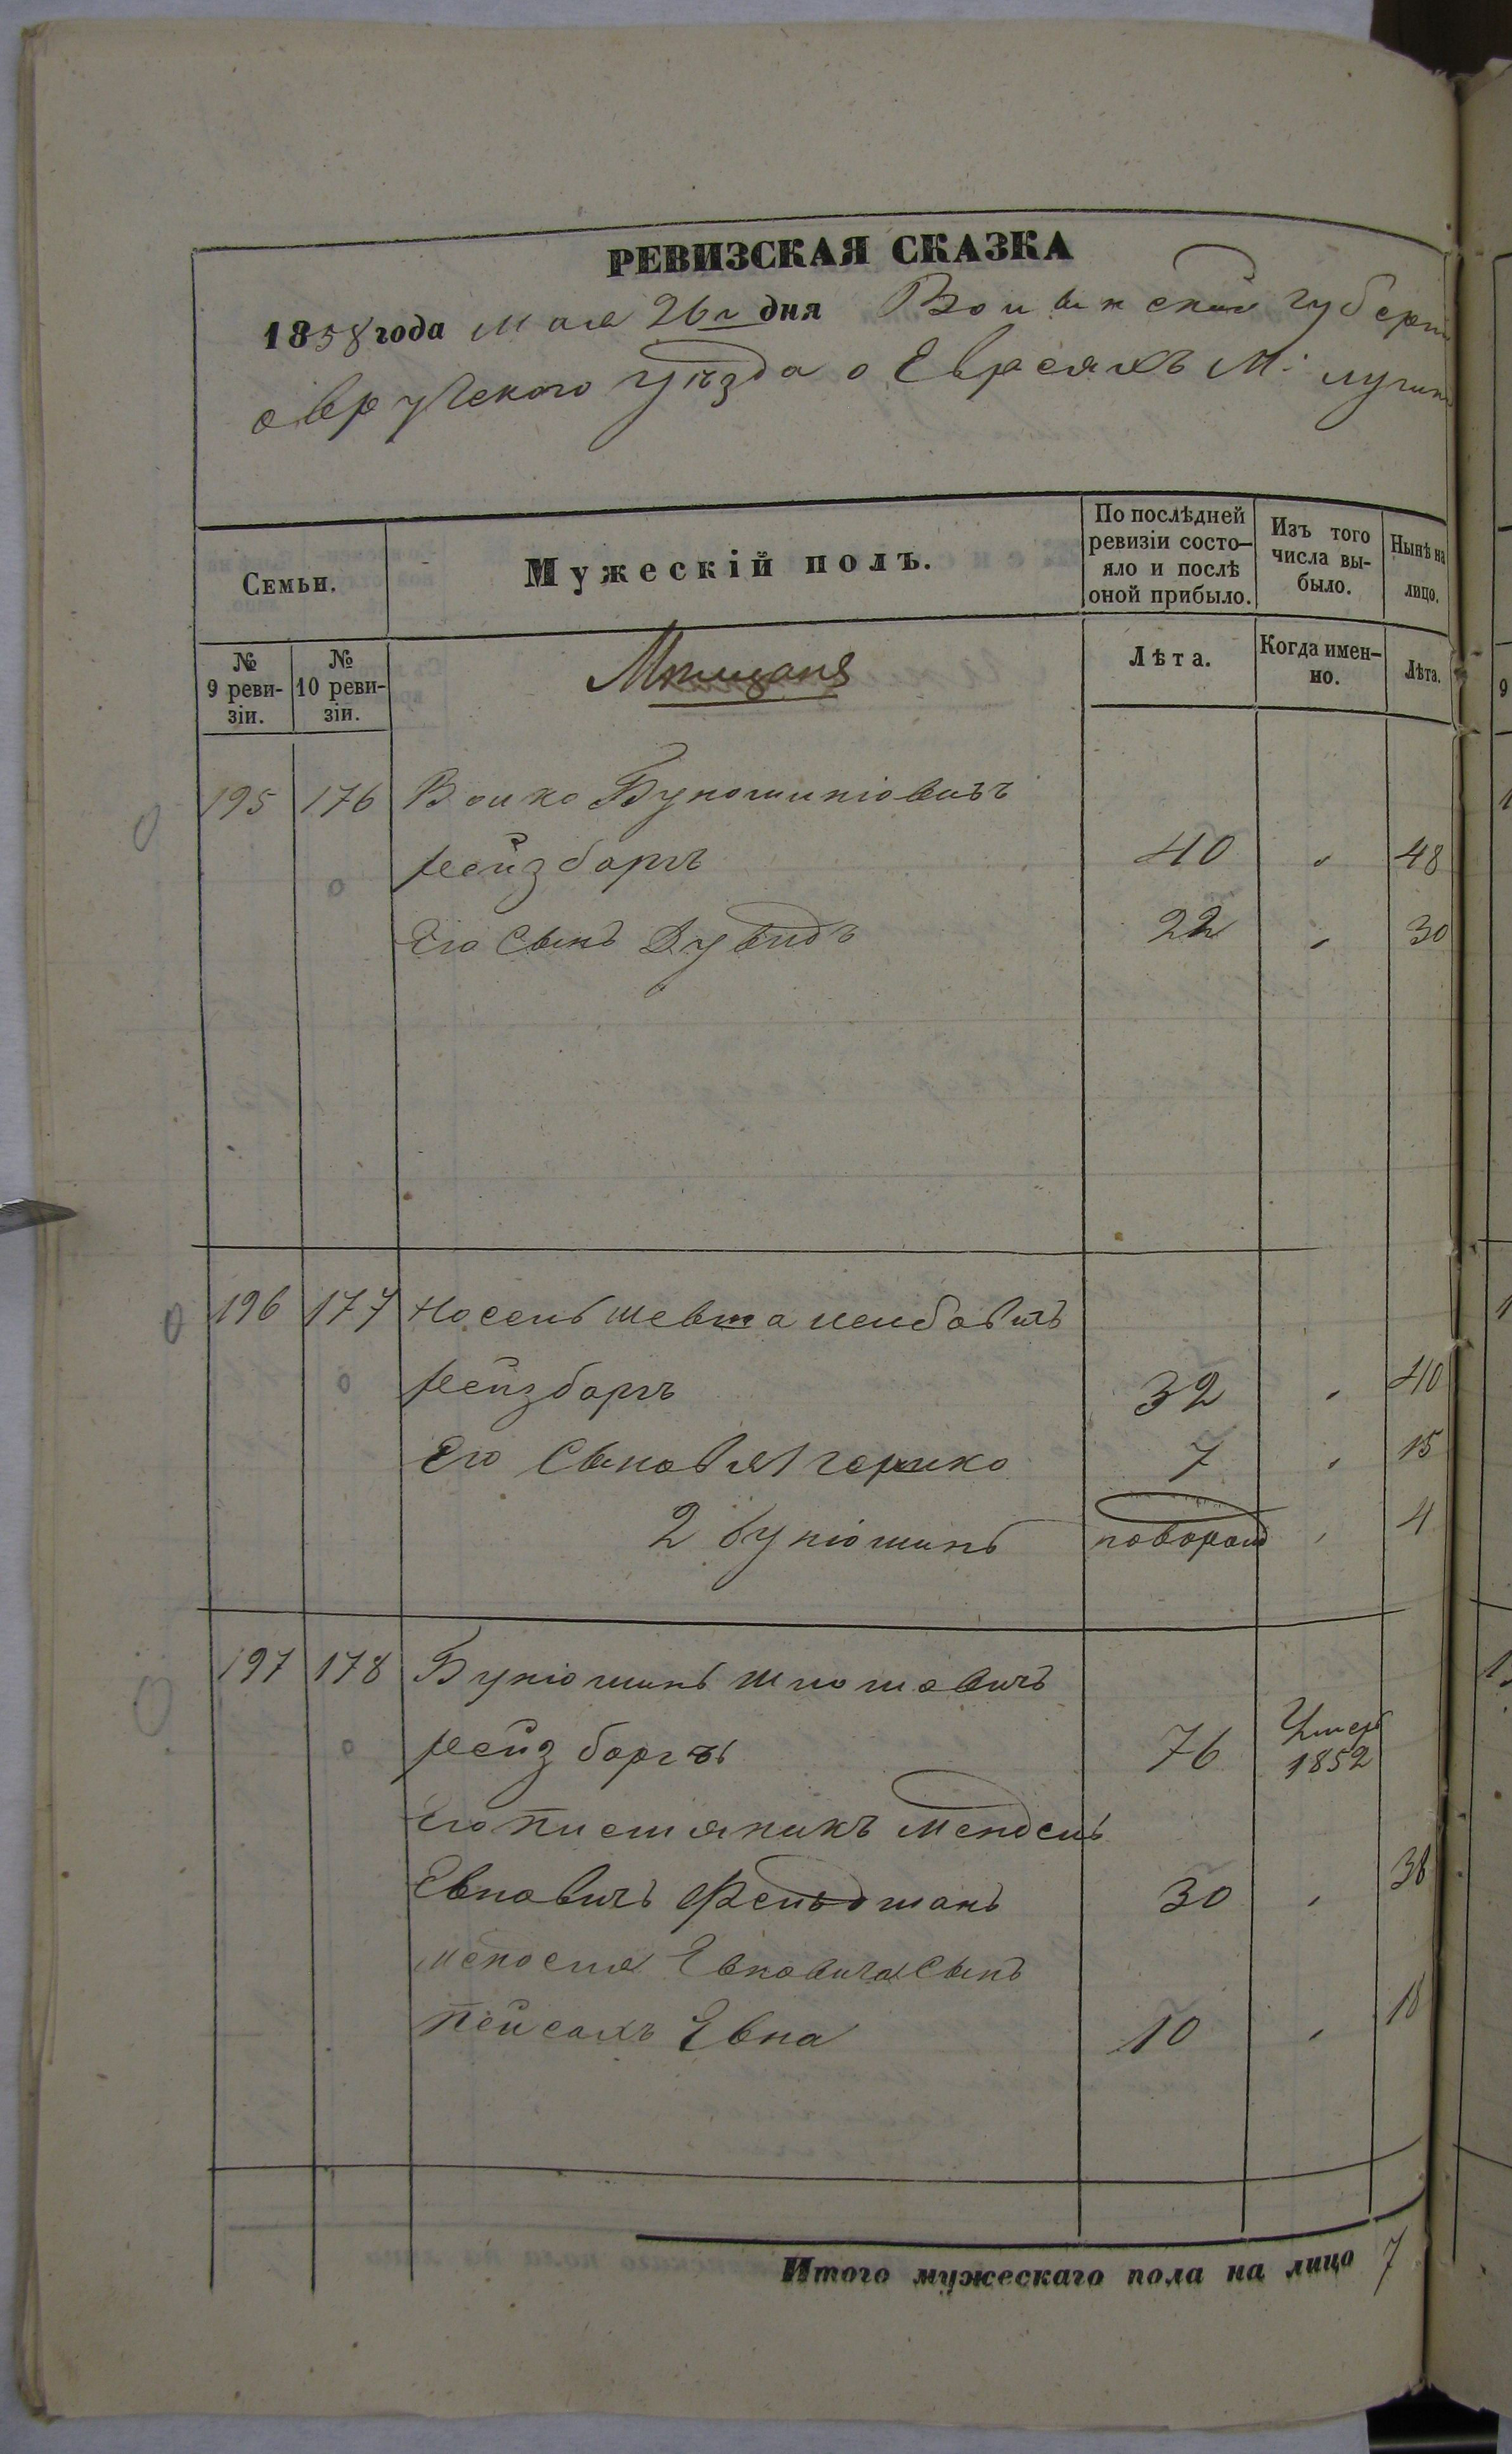 РЕВИЗСКАЯ СКАЗКА
1858 года Мая 26 г дня Волынской губерн
овручского уѣзда о Евреяхъ М: лугин
Семьи.
Мужескій полъ.
По послѣдней ревизіи состо-яло и послѣ оной прибыло.
Изъ того числа вы-было.
Нынѣ на лицо.
№ 9 реви-зіи.
№ 10 реви-зіи.
Мѣщане
Лѣта.
Когда имен-но.
Лѣта.
195 176 Волко Буномшиловичъ
рейзбаргъ 40 „ 48
Его Сынъ Дувидъ 22 „ 30
196 177 Носенъ лейбовичъ
рейзбаргъ 32 „ 40
Его Сыновья 1 гершко 7 „ 15
2 бунюминъ новорожд „ 4
197 178 Бунюминъ шломовичъ
рейзбаргъ 76 Умеръ 1852
Его племяникъ Мендель
Евновичъ Фельдманъ 30 „ 38
Менделя Евновича Сынъ
Пейсахъ Евна 10 „ 18
Итого мужескаго пола на лицо 7